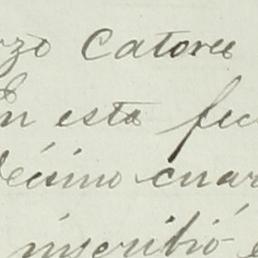 rzo Catorce
En esta fec
décimo cuar
inscribió